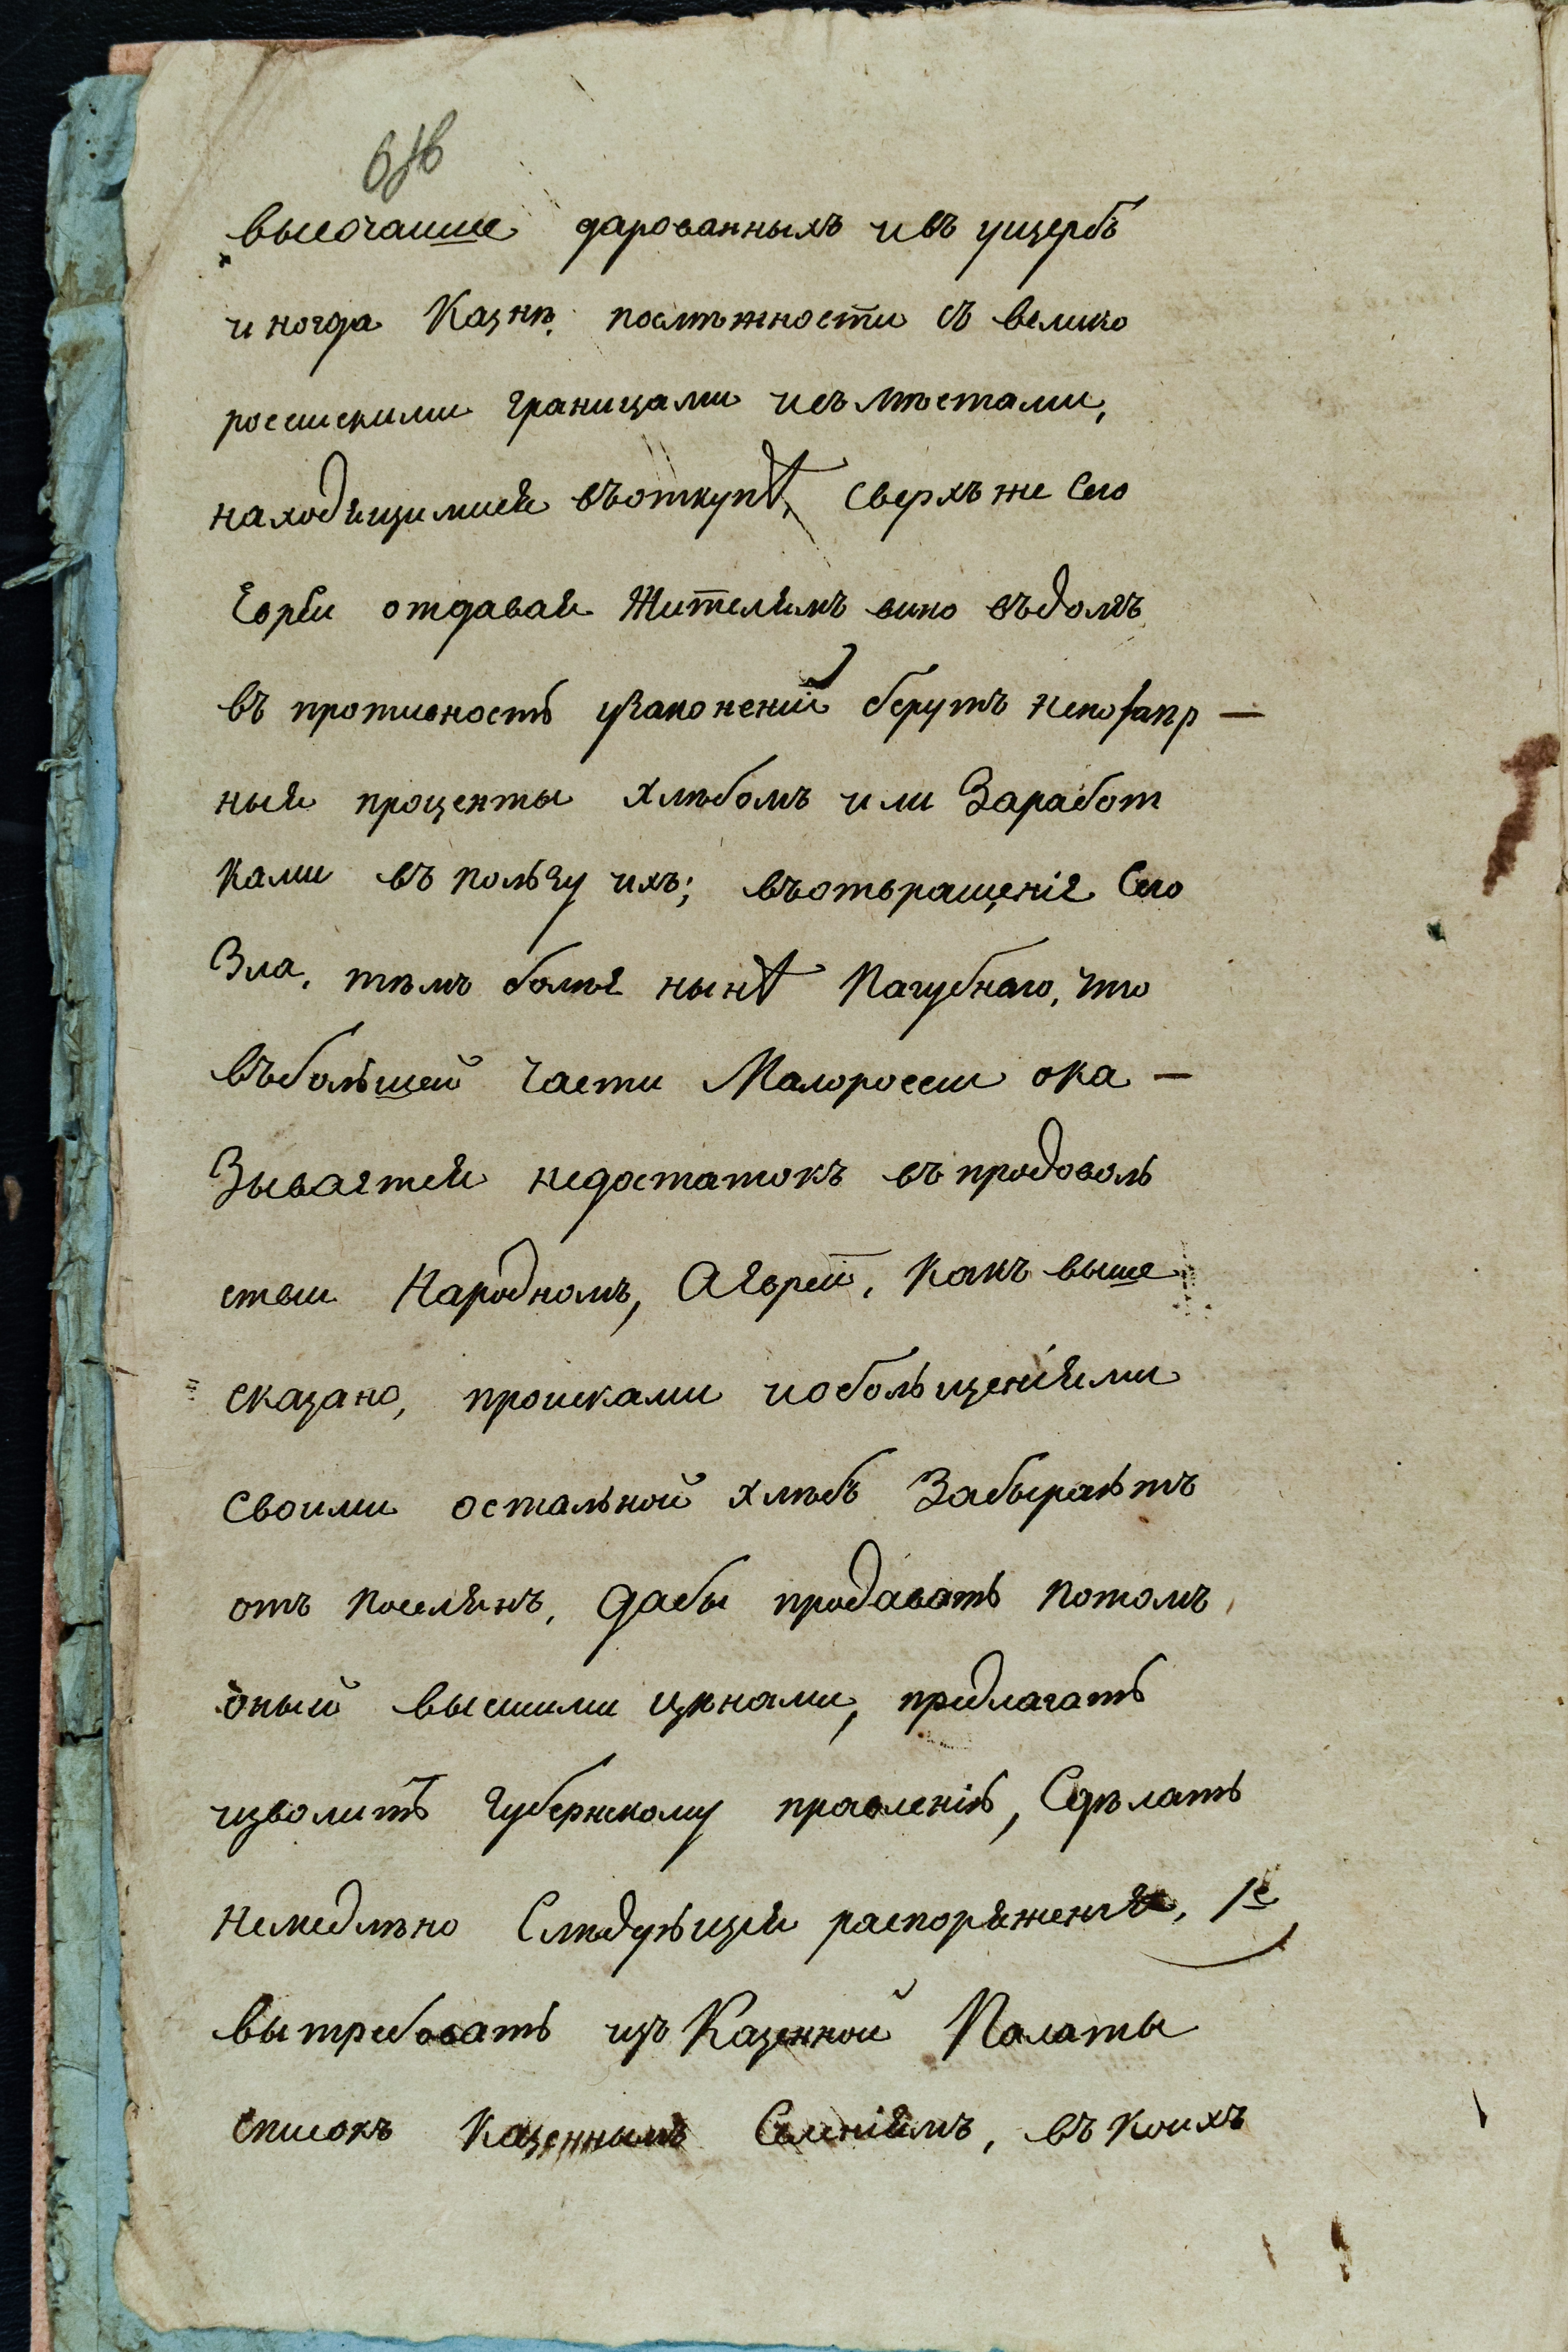 высочайше дарованныхъ ивъ ущербъ
иногда Казнѣ посмѣжности съ велико
россискими границами исъ мѣстами,
находящимися въоткупѣ, сверхъ же сего
Евреи отдавая жителямъ вино въдолгъ
въ противность узаконеній берутъ непозапр-
ныя проценты хлѣбомъ или Заработ
ками въ пользу ихъ; въотвращеніе сего
Зла, тѣмъ болѣе нынѣ Пагубнаго, что
въбольшей части Малоросси ока-
Зывается недостатокъ въ продоволь
стви Народномъ, Аевреи, какъ выше
сказано, происками иобольщеніями
своими остальной хлѣбъ Забыраютъ
отъ поселянъ, дабы продавать потомъ
оный высшими цѣнами, предлагать
изволитъ губернскому правленію, Сдѣлать
немедлѣно Слѣдующія распоряженія, 1е
вытребовать изъ Казенной Палаты
списокъ Казеннымъ Селеніямъ, въ коихъ